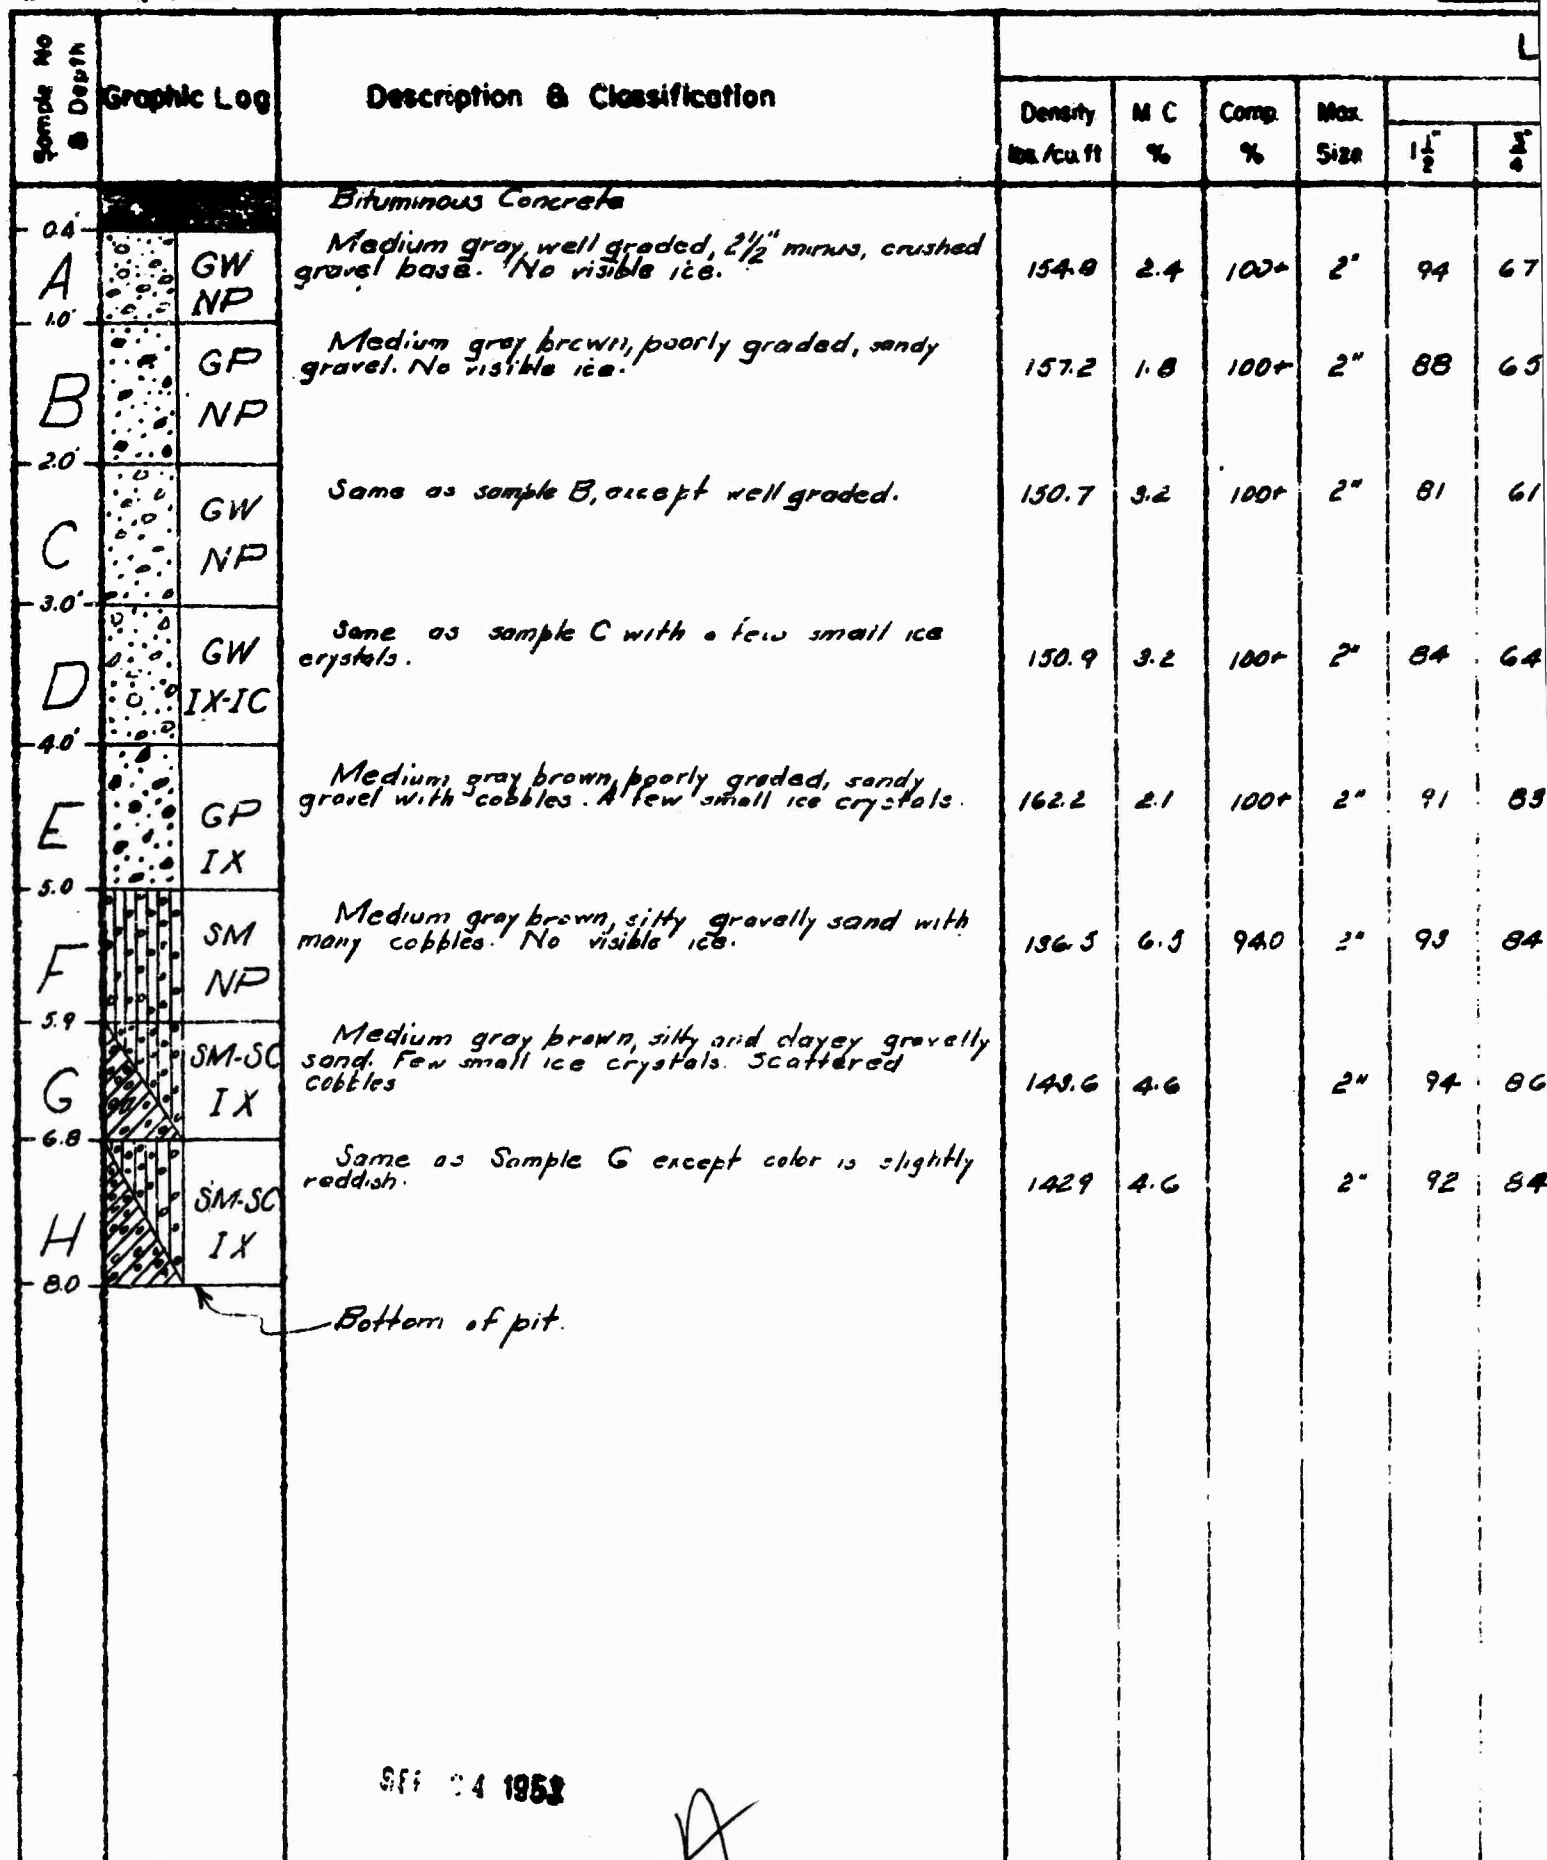 Sample No & Depth
Graphic Log
Description & Classification
L
Density lbs./cu.ft
M C %
Comp. %
Max. Size
1 1/2"
3/4"
Bituminous Concrete
0.4'
A
GW
NP
Medium gray, well graded, 2 1/2" minus, crushed
gravel base. No visible ice.
154.8 2.4 100+ 2" 94 67
1.0'
B
GP
NP
Medium gray brown, poorly graded, sandy
gravel. No visible ice.
157.2 1.8 100+ 2" 88 65
2.0'
C
GW
NP
Same as sample B, except well graded.
150.7 3.2 100+ 2" 81 61
3.0'
D
GW
IX-IC
Same as sample C with a few small ice
crystals.
150.9 3.2 100+ 2" 84 64
4.0'
E
GP
IX
Medium gray brown, poorly graded, sandy
gravel with cobbles. A few small ice crystals.
162.2 2.1 100+ 2" 91 83
5.0
F
SM
NP
Medium gray brown, silty gravelly sand with
many cobbles. No visible ice.
136.5 6.5 94.0 2" 93 84
5.9
G
SM-SC
IX
Medium gray brown, silty and clayey gravelly
sand. Few small ice crystals. Scattered
cobbles
4.6 2" 94 86
6.8
H
SM-SC
IX
Same as Sample G except color is slightly
reddish.
142.9 4.6 2" 92 84
8.0
Bottom of pit.
24
A